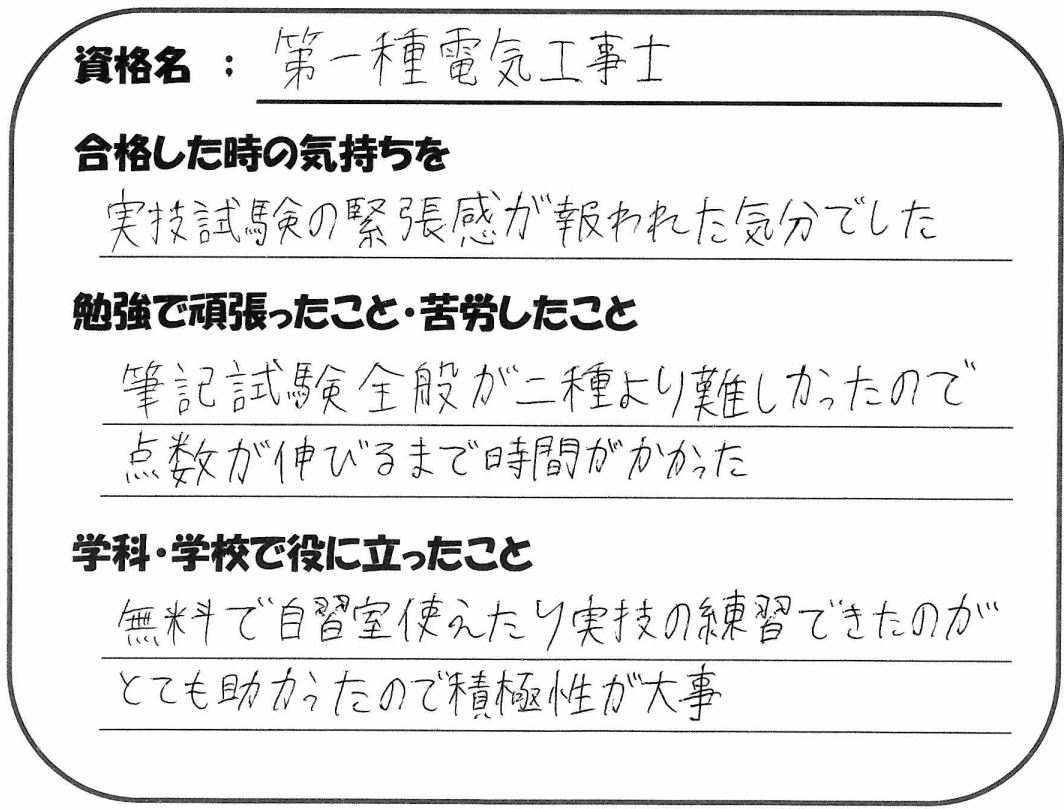 資格名 : 第一種電気工事士
合格した時の気持ちを
実技試験の緊張感が報われた気分でした
勉強で頑張ったこと・苦労したこと
筆記試験全般が二種より難しかったので
点数が伸びるまで時間がかかった
学科・学校で役に立ったこと
無料で自習室使えたり実技の練習できたのが
とても助かったので積極性が大事